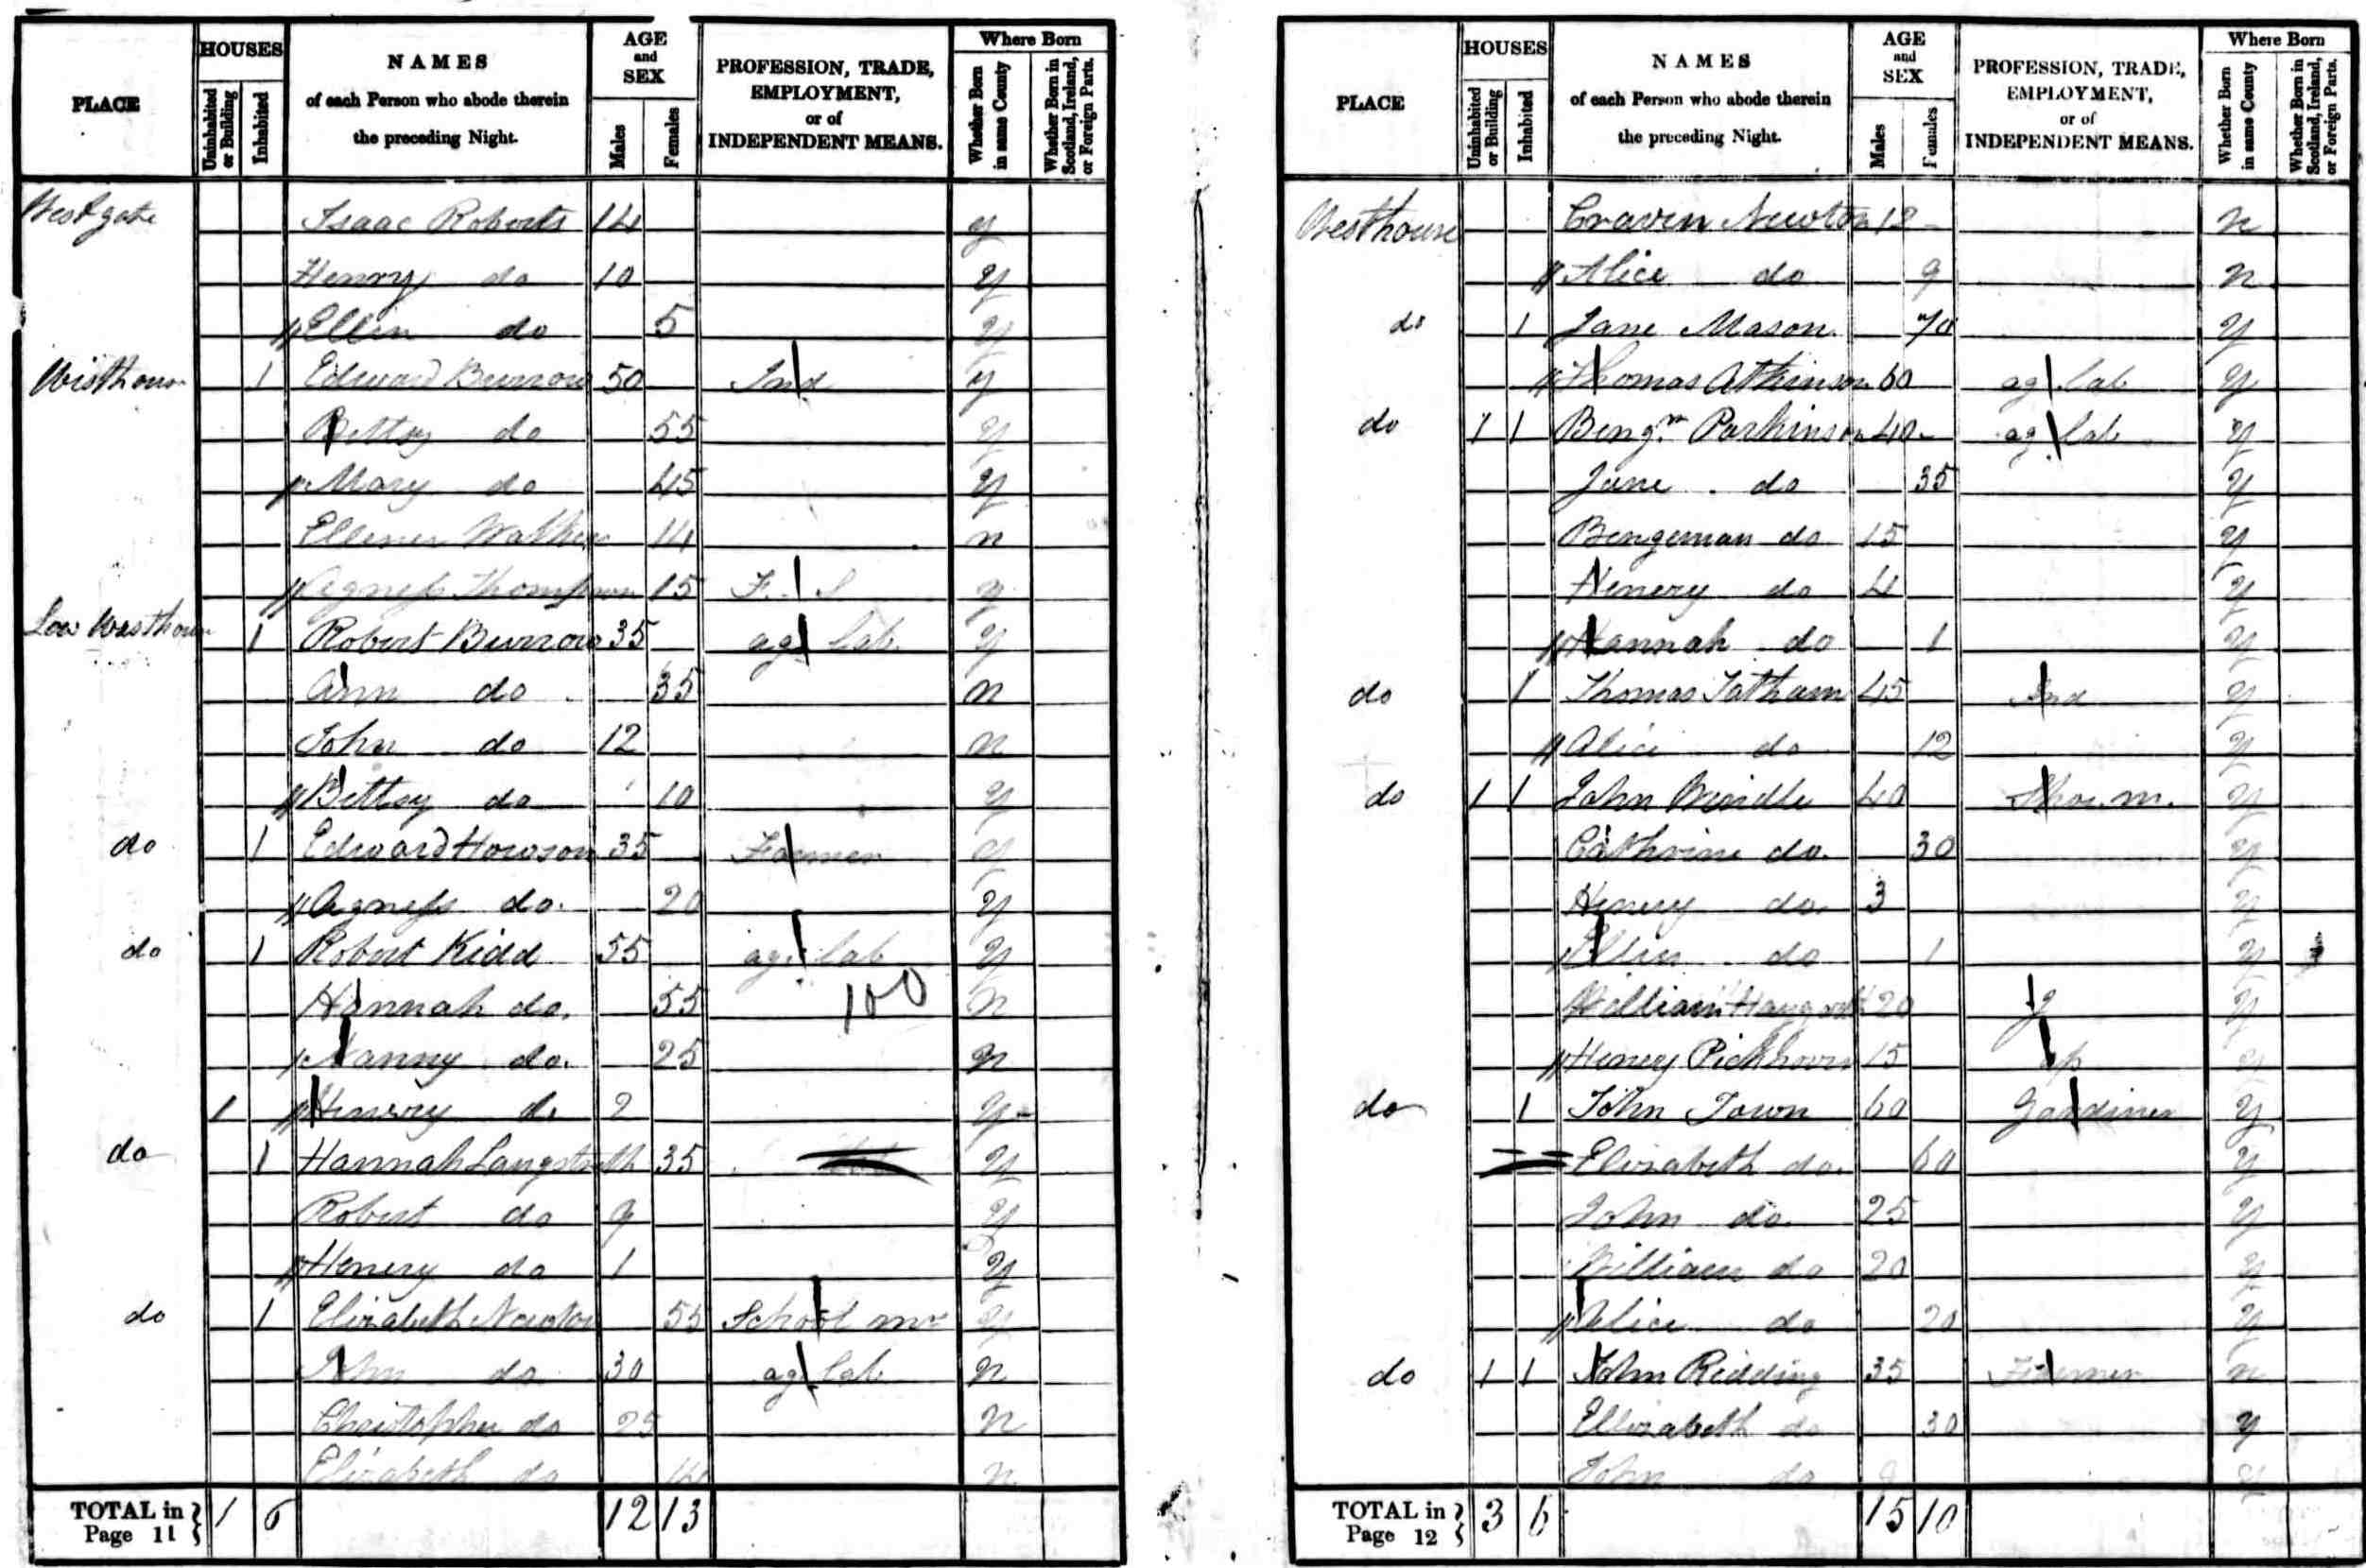 PLACE HOUSES Uninhabited or Building Inhabited NAMES of each Person who abode therein the preceding Night. AGE and SEX Males Females PROFESSION, TRADE, EMPLOYMENT, or of INDEPENDENT MEANS. Where Born Whether Born in same County Whether Born in Scotland, Ireland, or Foreign Parts.
Westgate Isaac Roberts 14 y
Henry do 10 y
Ellin do 5 y
Westhouse 1 Edward Burrow 50 Ind y
Bettsy do 55 y
Mary do 45 y
Ellener 14 n
Agness Thompson 15 F. S y
Low Westhouse 1 Robert Burrow 35 ag lab y
Ann do 35 n
John do 12 n
Bettsy do 10 y
do 1 Edward Howson 35 Farmer y
Agness do. 20 y
do 1 Robert Kidd 55 ag. lab y
Hannah do. 55 100 n
Nanny do. 25 n
1 Henery do 2 y
do 1 Hannah Langstroth 35 y
Robert do 9 y
Henery do 1 y
do 1 Elizabeth Newton 55 School mrs y
John do 30 ag lab n
Christopher do 25 n
Elizabeth do 14 n
TOTAL in Page 11 } 1 6 12 13
PLACE HOUSES Uninhabited or Building Inhabited NAMES of each Person who abode therein the preceding Night. AGE and SEX Males Females PROFESSION, TRADE, EMPLOYMENT, or of INDEPENDENT MEANS. Where Born Whether Born in same County Whether Born in Scotland, Ireland, or Foreign Parts.
Westhouse Craven Newton 12 n
Alice do 9 n
do 1 Jane Mason 70 y
Thomas Atkinson 60 ag lab y
do 1 1 Bengn Parkinson 40 ag lab y
Jane do 35 y
Bengeman do 15 y
Henery do 4 y
Hannah do 1 y
do 1 Thomas Tatham 45 Ind y
Alice do 12 y
do 1 1 John Brindle 40 Shoe m. y
Cathrine do. 30 y
Henery do. 3 y
Ellin do 1 y
William 20 J y
Henery 15 ap y
do 1 John Town 60 Gardiner y
Elizabeth do. 60 y
John do. 25 y
William do 20 y
Alice do 20 y
do 1 1 John Redding 35 Farmer n
Ellizabeth do 30 y
John do y
TOTAL in Page 12 } 3 6 15 10